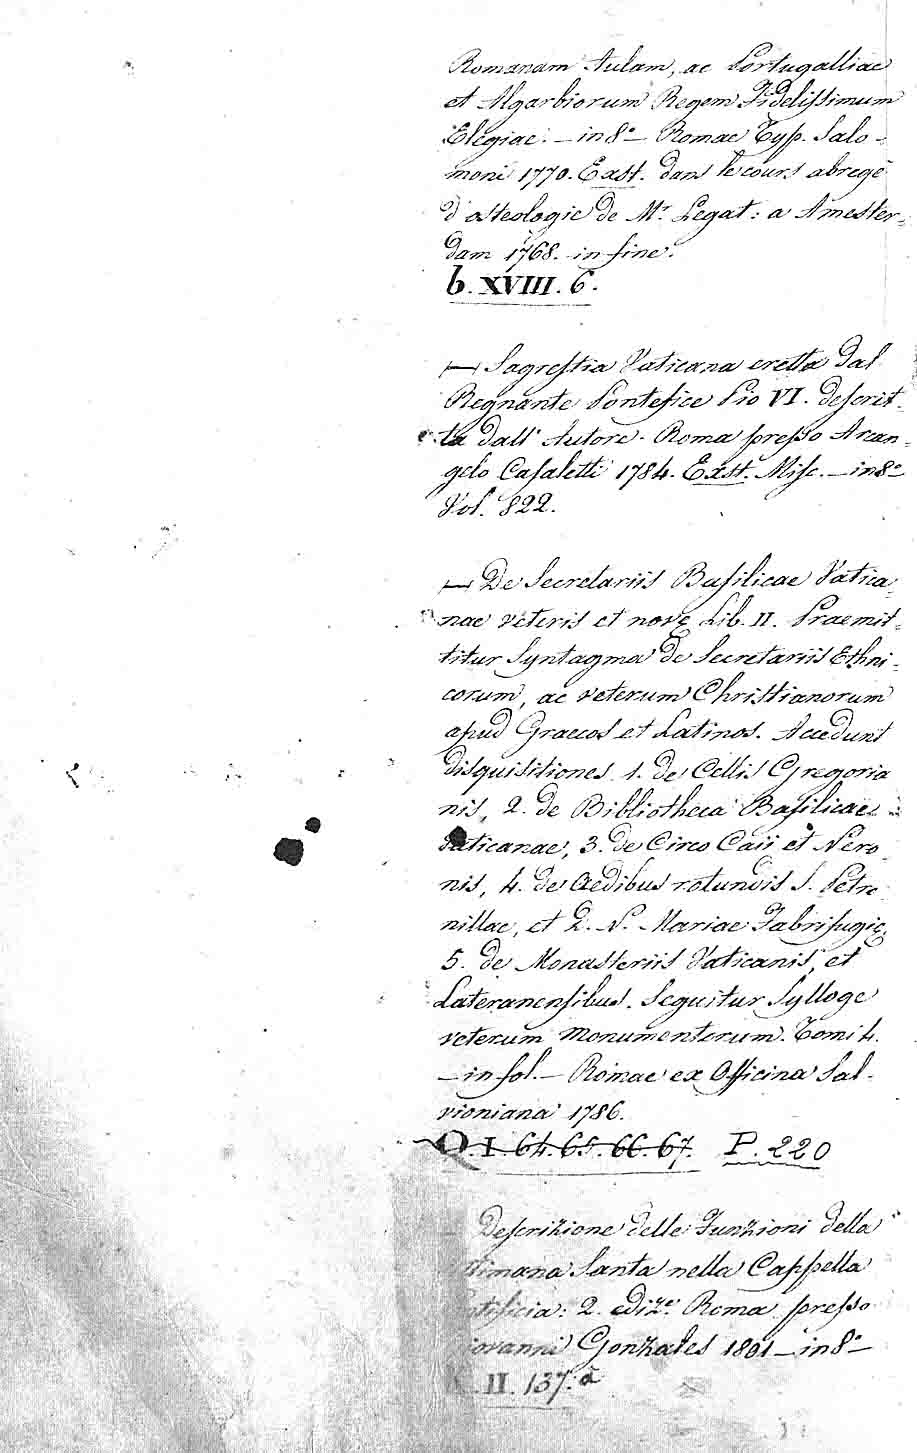 Romanam Aulam, ac Portugalliae
et Algarbiorum Regem Fidelissimum
Elegiae. - in 8º - Romae Typ. Salo-
moni 1770. Exst. dans le cours abregé
d'osteologie de Mr. Legat: a Amester-
dam 1768. in fine.
b. XVIII. 6.
— Sagrestia Vaticana eretta dal
Regnante Pontefice Pio VI. descrit-
ta dall' Autore. Roma presso Arcan-
gelo Casaletti 1784. Exst. Misc. - in 8º
Vol. 822.
— De Secretariis Basilicae Vatica-
nae veteris et novę Lib. II. Praemit-
titur Syntagma de Secretariis Ethni-
corum, ac veterum Christianorum
apud Graecos et Latinos. Accedunt
disquisitiones 1. de Cellis Gregoria
nis, 2. de Bibliotheca Basilicae
Vaticanae, 3. de Circo Caii et Nero-
nis, 4. de Aedibus rotundis S. Petro
nillae, et D. N. Mariae Fabrifugię,
5. de Monasteriis Vaticanis, et
Lateranensibus. Sequitur Sylloge
veterum monumentorum. Tomi 4.
- in fol. - Romae ex Officina Sal-
vioniana 1786.
Q. I 64. 65. 66. 67. P. 220
Descrizione delle Funzioni della
timana Santa nella Cappella
tificia: 2. ediz.e Roma presso
iovanni Gonzales 1801 - in 8º -
II. 137. a